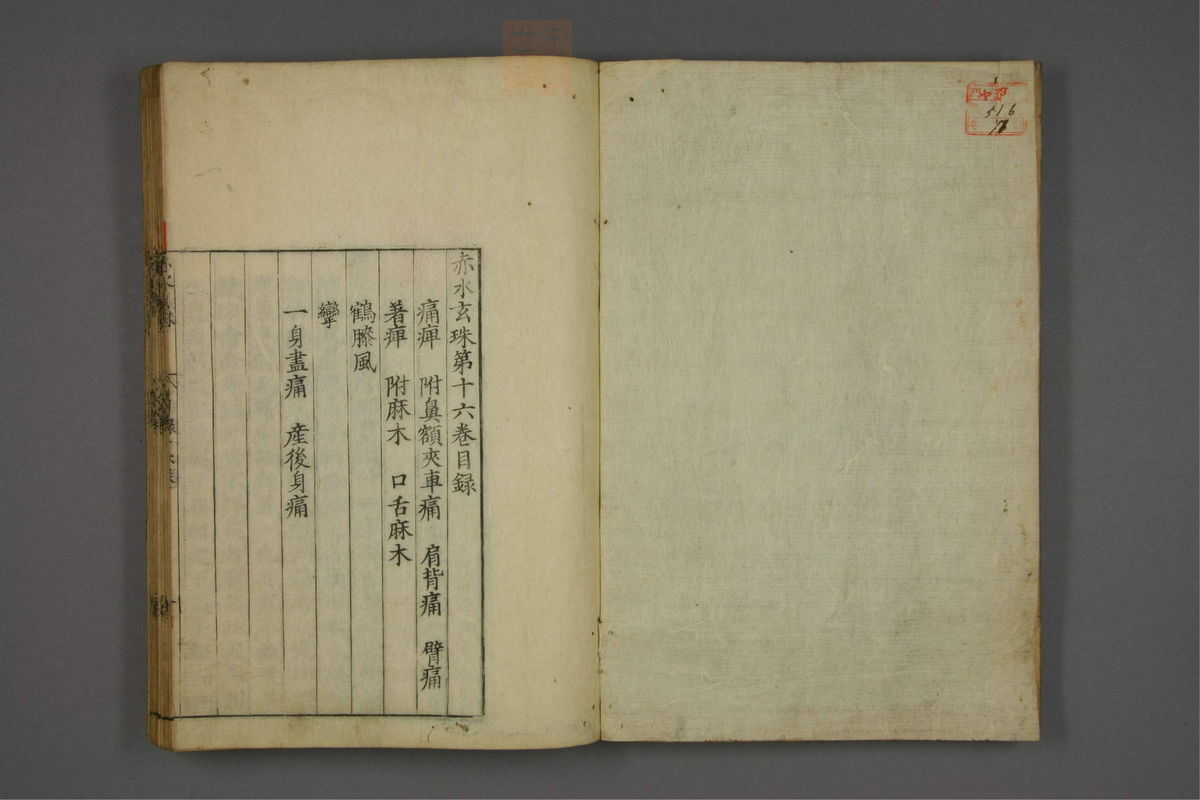 赤水玄珠第十六卷目録
痛痺　附鼻額夾車痛　肩背痛　臂痛
著痺　附麻木　口舌麻木
鶴膝風
攣
一身盡痛　産後身痛
516